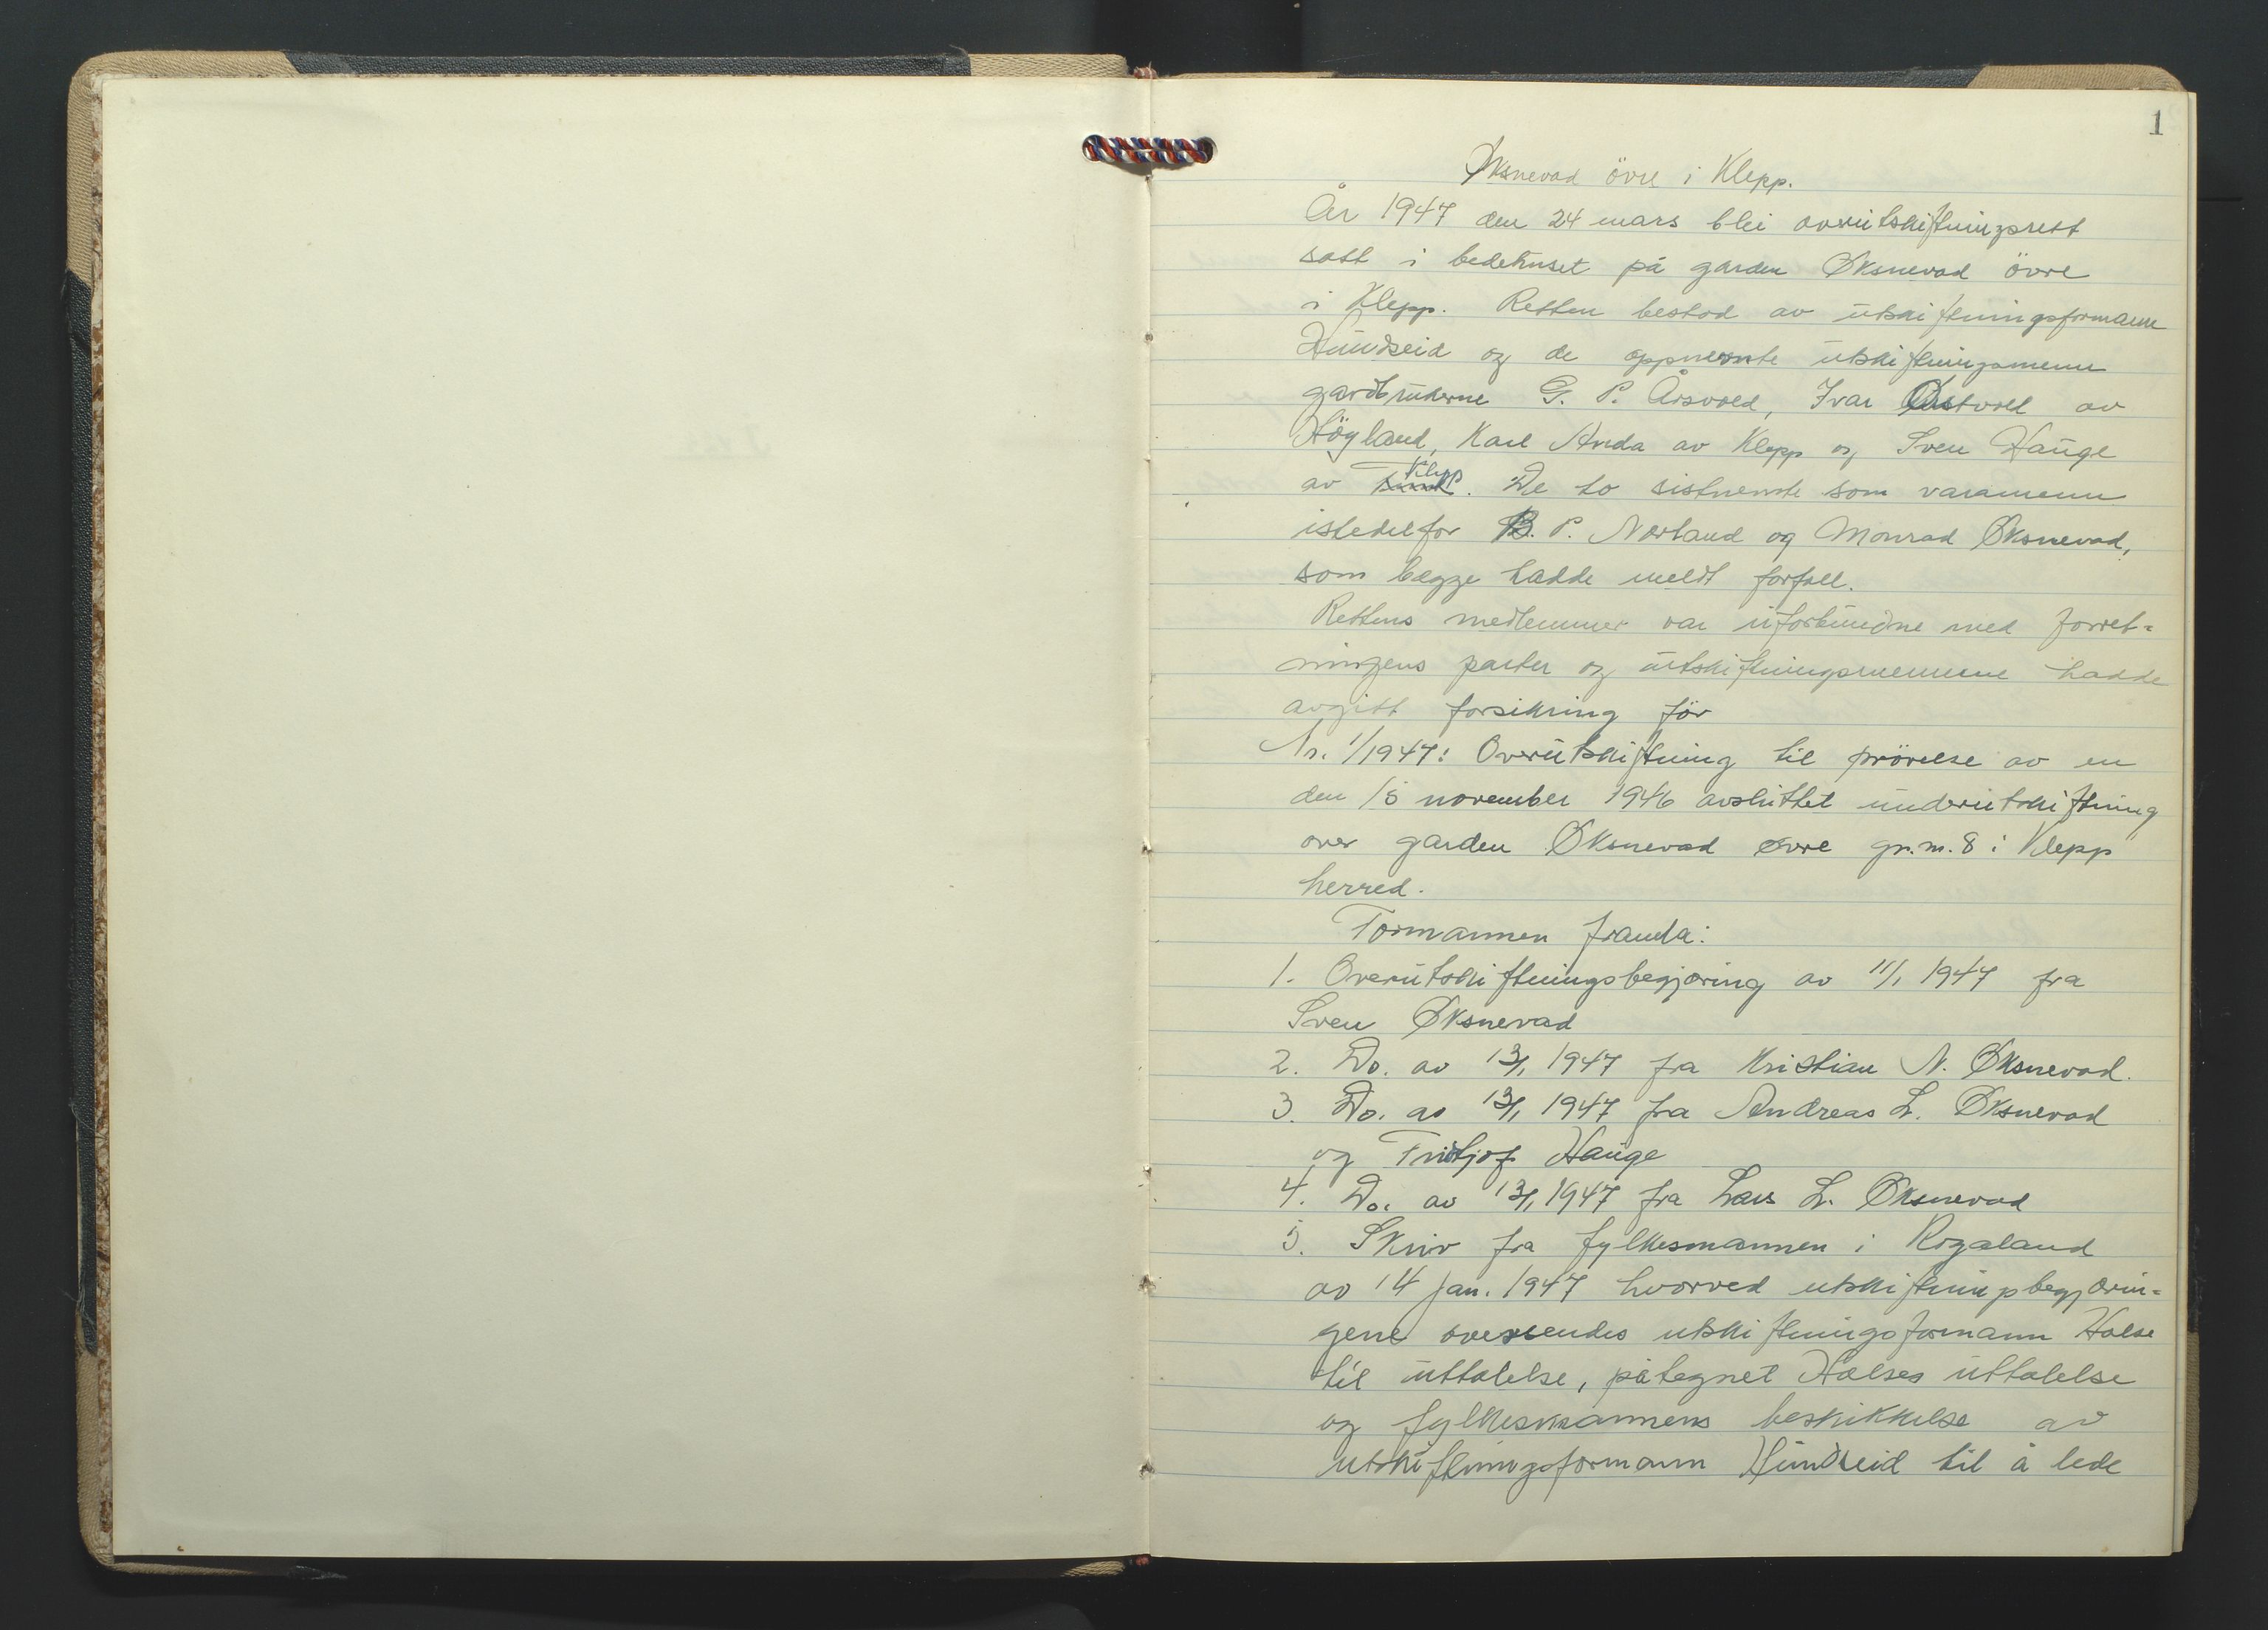 1
Øksnevad övre i Klepp.
År 1947 den 24 mars blei overutskiftningsrett
satt i bedehuset på garden Øksnevad övre
i Klepp. Retten bestod av utskiftningsformann
Hundseid og de oppnevnte utskiftningsmenn
gardbrukerne G. P. Årsvold, Ivar Østvold av
Högland, Karl Anda av Klepp og Sven Hauge
av Klepp. De to sistnevnte som varamenn
istedetfor B. P. Nærland og Monrad Øksnevad,
som begge hadde meldt forfall.
Rettens medlemmer var uforbundne med forret-
ningens parter og utskiftningsmennene hadde
avgitt forsikring för
Nr. 1/1947: Overutskiftning til prövelse av en
den 15 november 1946 avsluttet underutskiftning
over garden Øksnevad øvre gr.nr. 8 i Klepp
herred.
Formannen framla:
1. Overutskiftningsbegjæring av 11/1 1947 fra
Sven Øksnevad
2. Do. av 13/1 1947 fra Kristian N. Øksnevad.
3. Do. av 13/1 1947 fra Andreas L. Øksnevad
og Fridtjof Hauge
4. Do. av 13/1 1947 fra Lars L. Øksnevad
5. Skriv fra fylkesmannen i Rogaland
av 14 jan. 1947 hvorved utskiftningsbegjærin-
gene oversendes utskiftningsformann Halse
til uttalelse, påtegnet Halses uttalelse
og fylkesmannens beskikkelse av
utskiftningsformann Hundseid til å lede